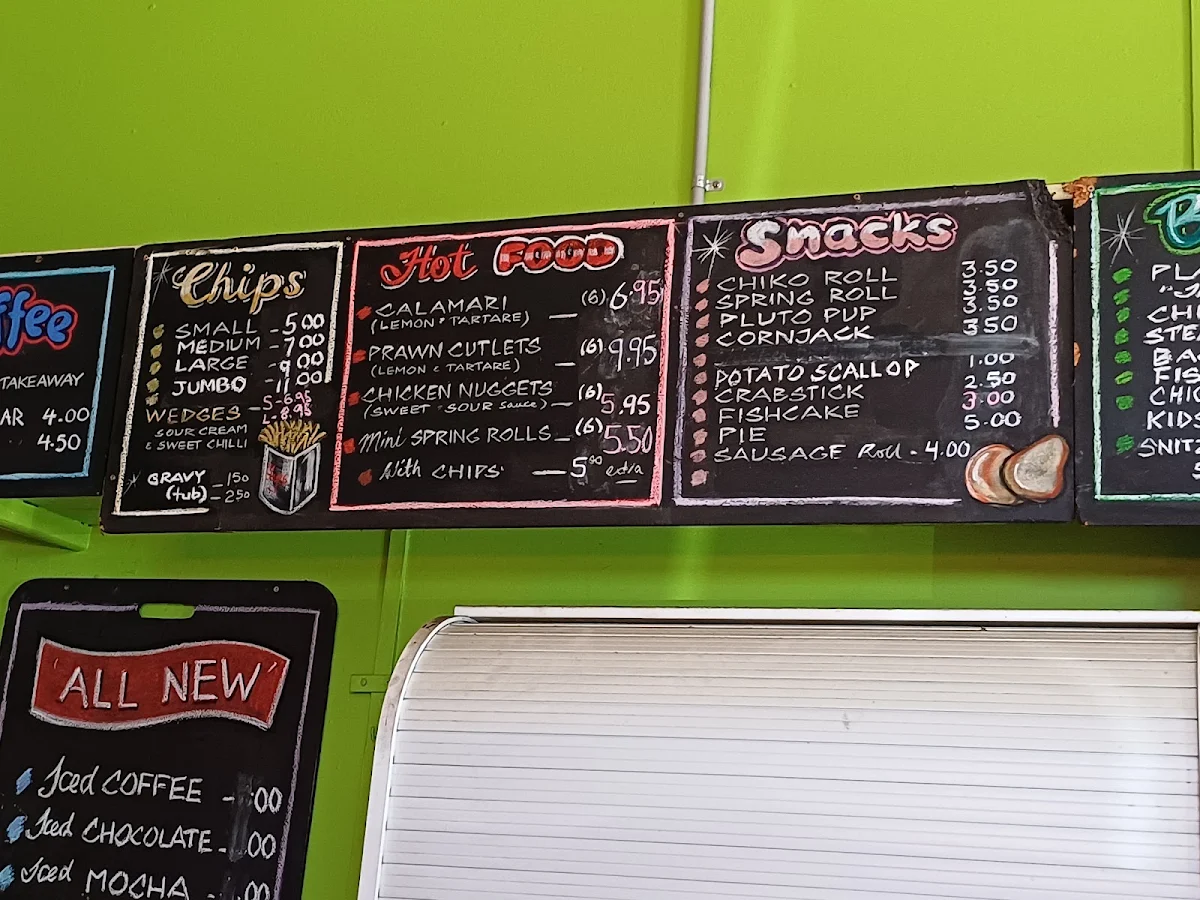 ffee
TAKEAWAY
AR 4.00
4.50
Chips
SMALL - 5.00
MEDIUM - 7.00
LARGE - 9.00
JUMBO - 11.00
WEDGES - S-6.95
L-8.95
SOUR CREAM
& SWEET CHILLI
GRAVY - 150
(tub) - 250
Hot FOOD
CALAMARI (6) 6.95
(LEMON & TARTARE)
PRAWN CUTLETS (6) 9.95
(LEMON & TARTARE)
CHICKEN NUGGETS (6) 5.95
(SWEET & SOUR Sauce)
Mini SPRING ROLLS - (6) 5.50
With CHIPS - 5.00 extra
Snacks
CHIKO ROLL 3.50
SPRING ROLL 3.50
PLUTO PUP 3.50
CORNJACK 3.50
POTATO SCALLOP 1.00
CRABSTICK 2.50
FISHCAKE 3.00
PIE 5.00
SAUSAGE Roll - 4.00
B
PL
CH
STEA
BA
FIS
CHIC
KIDS
SNITZ
'ALL NEW'
Iced COFFEE - .00
Iced CHOCOLATE - .00
Iced MOCHA - .00